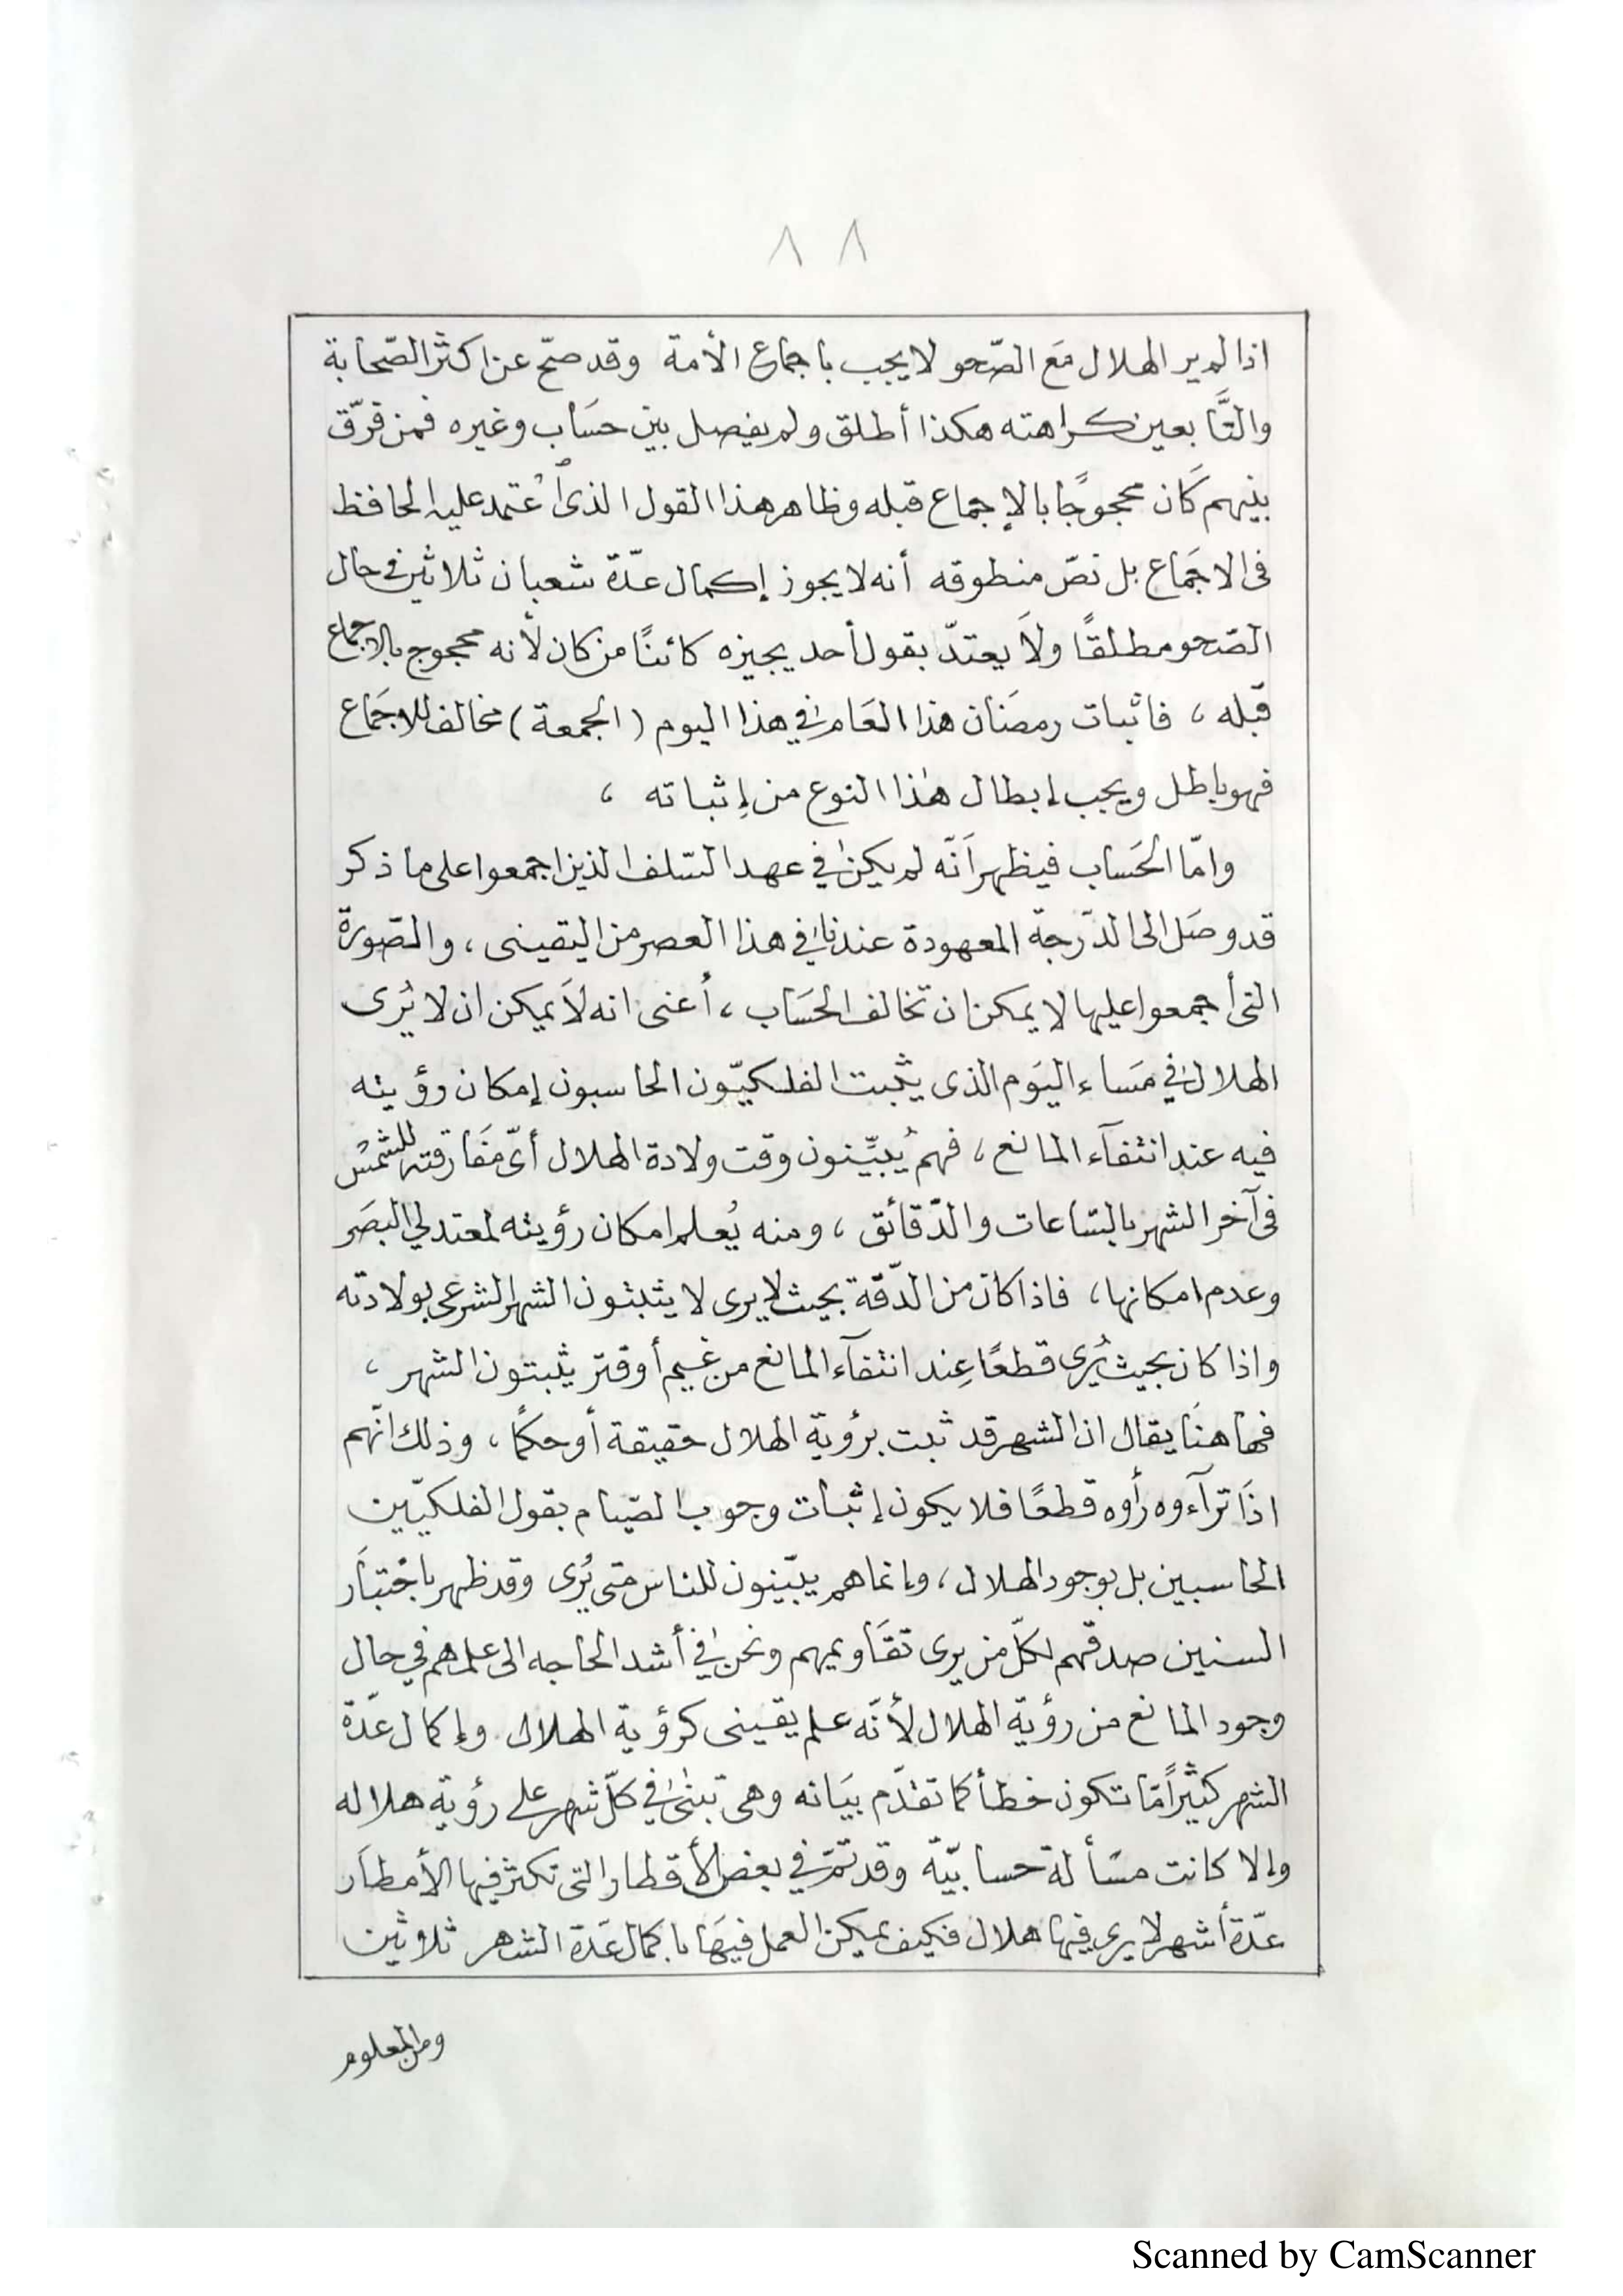 ٨٨
اذا لم ير الهلال مَع الصّحو لا يجب باجماع الأمة وقد صحّ عن اكثر الصّحابة
والتَّابعين كراهته هكذا أطلق ولم يفصل بين حسَاب وغيره فمن فرّق
بينهم كَان محجوجًا بالإجماع قبله وظاهر هذا القول الذى اُعتمد عليه الحافظ
فى الاجمَاع بل نصّ منطوقه أنه لا يجوز إكمال عدّة شعبان ثلاثين فى حال
الصّحو مطلقًا ولاَ يعتدّ بقول أحد يجيزه كائنًا من كان لأنه محجوج بالاجماع
قبله ، فاثبات رمضَان هذا العَام فى هذا اليوم (الجمعة) مخالف للاجمَاع
فهو باطل ويجب إبطال هٰذا النوع من إِثباته ،
وامّا الحَساب فيظهر اَنّه لم يكن فى عهد السّلف الذين اجمعوا على ما ذكر
قد وصَل الى الدّرجة المعهودة عندنا فى هذا العصر من اليقينى ، والصّورة
التى أجمعوا عليها لا يمكن ان تخالف الحَساب ، أعنى انه لاَ يمكن ان لا يُرى
الهلال فى مسَاء اليَوم الذى يثبت الفلكيّون الحاسبون إمكان رؤيته
فيه عند انتفآء المانع ، فهم يُبيِّنون وقت ولادة الهلال أىّ مفَارقته للشمْس
فى آخر الشهر بالسّاعات والدّقائق ، ومنه يُعلم امكان رؤيته لمعتدلي البصَر
وعدم امكانها ، فاذا كان من الدّقّة بحيث لا يرى لا يثبتون الشهر الشرعى بولادته
واذا كان بحيث يُرى قطعًا عِند انتفآء المانع من غيم أو قتر يثبتون الشهر ،
فهاهنَا يقال ان الشهر قد ثبت برؤية الهلال حقيقة أو حكمًا ، وذلك انّهم
اذَا ترآءوه رأوه قطعًا فلا يكون إثبات وجوب الصّيام بقول الفلكيّين
الحاسبين بل بوجود الهلال ، وإنما هم يبيّنون للناس متى يُرى وقد ظهر باختبَار
السنين صدقهم لكلّ من يرى تقَاويمهم ونحن فى أشد الحاجه الى علمهم فى حال
وجود المانع من رؤية الهلال لأنّه علم يقينى كرؤية الهلال وإكمال عدّة
الشهر كثيرًا مّا تكون خطأ كما تقدّم بيَانه وهى تبنىٰ فى كلّ شهر على رؤية هلاله
وإلا كانت مسَألة حسابيّة وقد تمرّ فى بعض الأقطار التى تكثر فيها الأمطَار
عدّة أشهر لا يرى فيها هلال فكيف يمكن العمل فيهَا باكمال عَدة الشهر ثلاثين
ومن المعلوم
Scanned by CamScanner